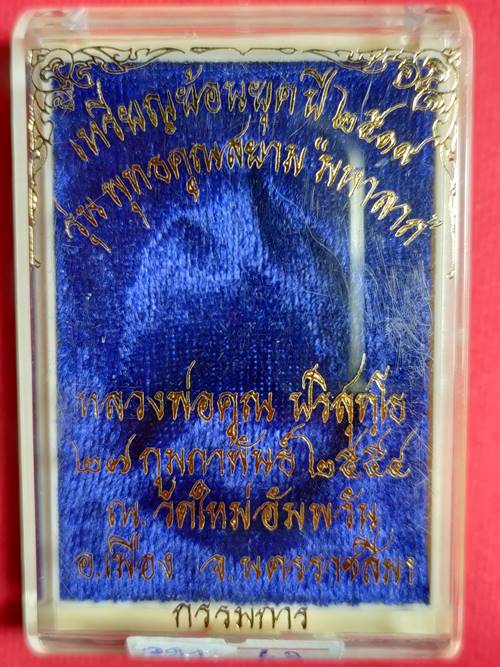 เหรียญย้อนยุคปี ๒๕๑๙
รุ่น พุทธคูณสยาม "มหาลาภ"
หลวงพ่อคูณ ปริสุทฺโธ
๒๗ กุมภาพันธ์ ๒๕๕๔
ณ. วัดใหม่อัมพวัน
อ.เมือง จ.นครราชสีมา
กรรมการ